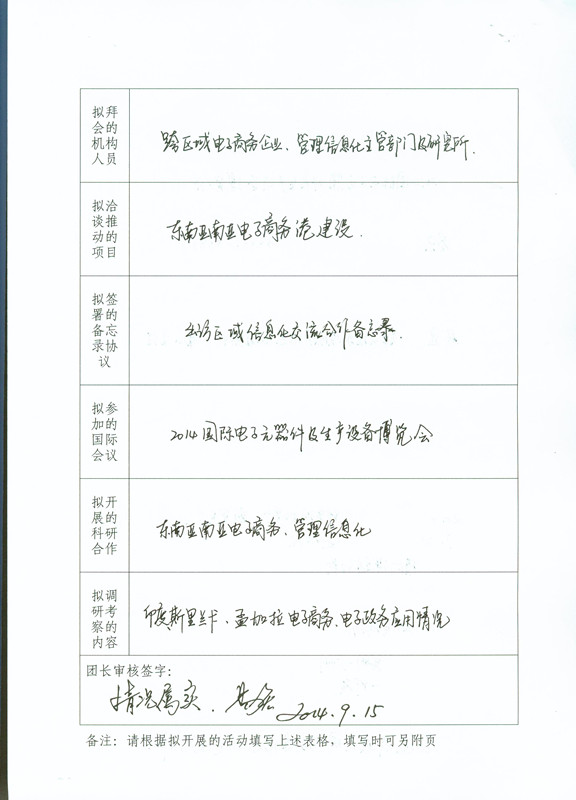 拟拜
会的
机构
人员
跨区域电子商务企业、管理信息化主管部门及研究所.
拟洽
谈推
动的
项目
东南亚南亚电子商务港建设.
拟签
署的
备忘
录协
议
出访区域信息化交流合作备忘录.
拟参
加的
国际
会议
2014国际电子元器件及生产设备博览会
拟开
展的
科研
合作
东南亚南亚电子商务、管理信息化
拟调
研考
察的
内容
印度斯里兰卡、孟加拉电子商务、电子政务应用情况
团长审核签字:
情况属实.
2014.9.15
备注: 请根据拟开展的活动填写上述表格，填写时可另附页